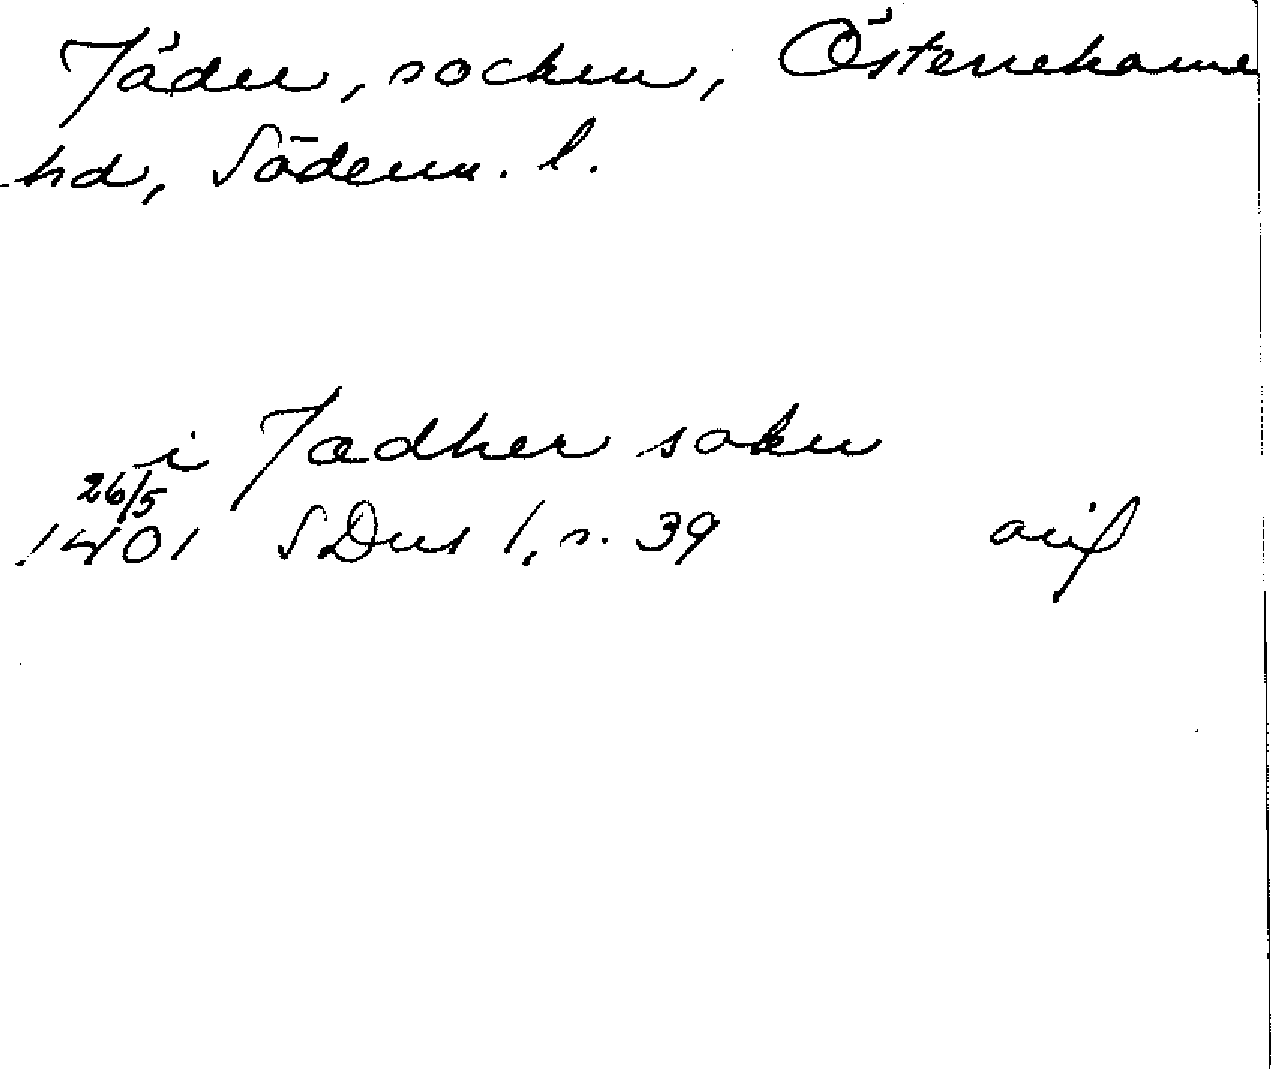 Jäder, socken, Österrekarne
hd, Söderm. l.
i Jædher sokn
26/5
1401 SDns 1, s. 39